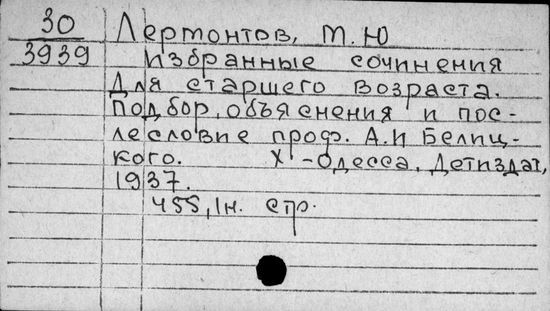 30 Лермонтов, М. Ю
3939 Избранные сочинения
Для старшего возраста.
Подбор, объяснения и пос-
лесловие проф. А.И Белиц-
кого. Х-Одесса, Детиздат,
1937.
455, 1н. стр.